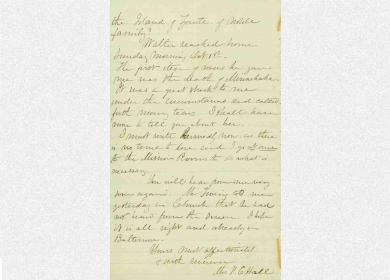 the Island of Zante of Melila
family."
Walter reached home
Sunday Morning Oct 1st.
The first item of news he gave
me was the death of Minnehaha.
It was a great shock to me
under the circumstances and called
forth many tears. I shall have
more to tell you about her.
I must write hurriedly now, as there
is no time to lose and I go
to the Mission Rooms to do what is
necessary.
You will hear from me very
soon again. Mr told me
yesterday in Church that he had
not heard from the I hope
it is all right and already in
Baltimore.
Yours most affectionately
& with
Mrs Hall